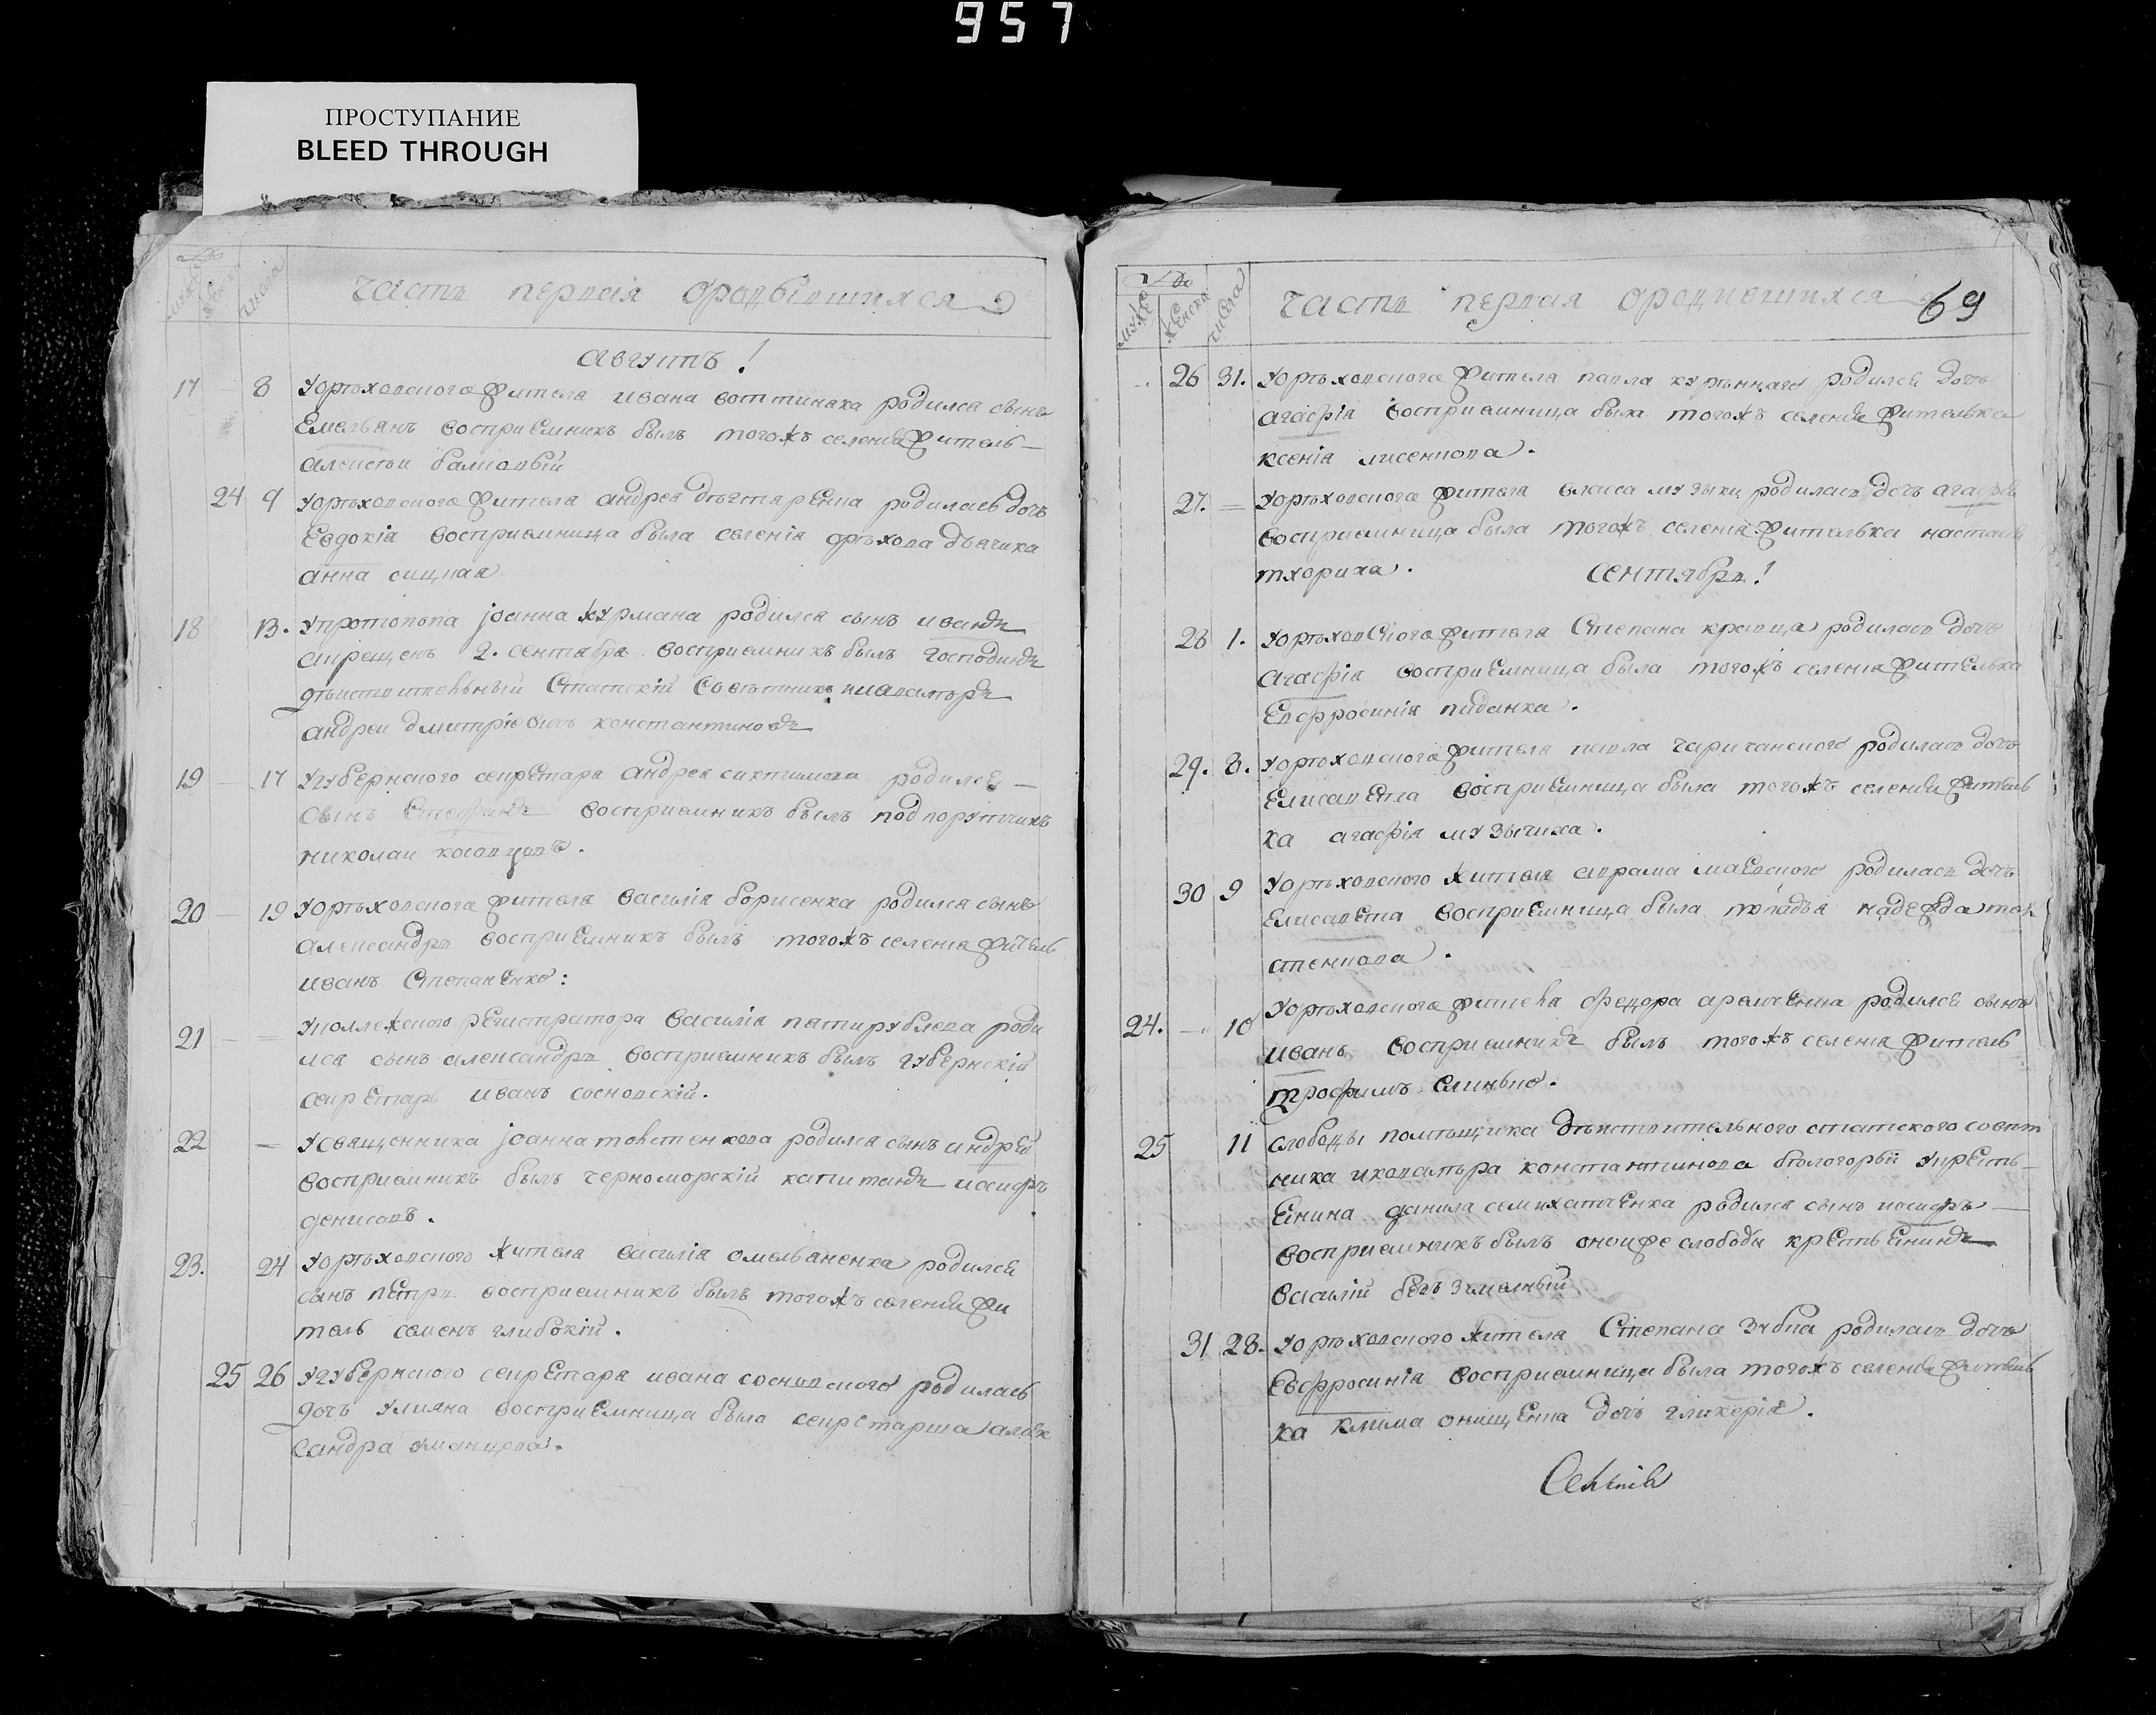 957
ПРОСТУПАНИЕ
BLEED THROUGH
часть первая
Августъ!
17 8 Уорѣховского жителя ивана родился сынъ
Емельянъ восприемникъ былъ тогожъ селения житель
алексеи
24 9 Уорѣховского жителя андрея родилась дочь
Евдокія восприемница была селенія орѣхова дьячиха
анна
18 13. Упротопопа іоанна курмана родился сынъ иванъ
крещенъ 2. сентября восприемникъ былъ господинъ
дѣиствителъный Статский Советникъ икавалѣръ
андреи дмитріевичь константиновъ
19 17 Угубернского секретаря андрея родился
сынъ Стефанъ восприемникъ былъ подпорутчикъ
николаи
20 19 Уорѣховского жителя василія борисенка родился сынъ
александръ восприемникъ былъ тогожъ селения житель
иванъ Степаненко:
21 = Уколлежского регистратора василія патирублева роди
лся сынъ александръ восприемникъ былъ губернскій
секретарь иванъ сосновскій.
22 = Усвященника іоанна толстенкова родился сынъ андрей
восприемникъ былъ черноморскій капитанъ иосифъ
денисовъ.
23. 24 Уорѣховского жителя василія омельяненка родился
сынъ петръ восприемникъ былъ тогожъ селения жи
тель семенъ глибокій.
25 26 Угубернского секретаря ивана сосновского родилась
дочь улияна восприемница была секретарша алек
сандра уманцева.
мужс женска числа
часть первая ородившихся
69
26 31. Уорѣховского жителя павла родился дочь
агафія восприемница была тогожъ селения жителька
ксенія лисенкова.
27. = Уорѣховского жителя власа музыки родилась дочь агафія
восприемница была тогожъ селенія жителька
тхориха. Сентябрь!
28 1. Уорѣховского жителя Степана кравца родилась дочь
агафія восприемница была тогожъ селенія жителька
Евфросинія
29. 8. Уорѣховского жителя павла чаричанского родилась дочь
Елисавета восприемница была тогожъ селения житель
ка агафія музычиха.
30 9 Уорѣховского жителя аврама маевского родилась дочь
Елисавета восприемница была попадья надежда тол
стенкова.
24. 10 Уорѣховского жителя федора родился сынъ
иванъ восприемникъ былъ тогожъ селения житель
трофимъ
25 11 слободы помѣщика дѣиствительного статского совѣт
ника икавалѣра константинова бѣлогорьи укресть
Енина данила семихатченка родился сынъ иосифъ
восприемникъ былъ оноиже слободы крестьянинъ
василій
31 28. Уорѣховского жителя Степана зубка родилась дочь
Евфросинія восприемница была тогожъ селения житель
ка клима онищенка дочь гликерія.